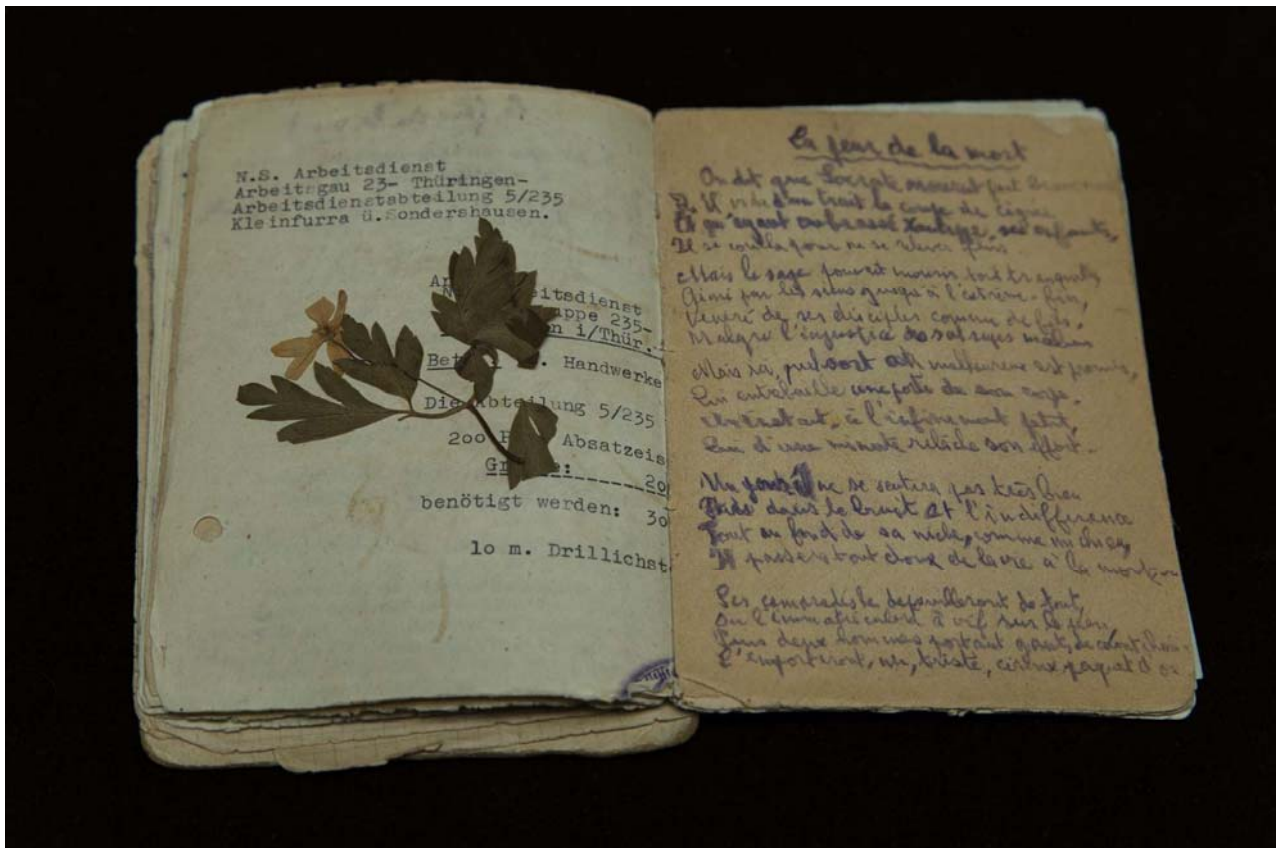 N.S. Arbeitsdienst
Arbeitsgau 23- Thüringen-
Arbeitsdienstabteilung 5/235
Kleinfurra ü.Sondershausen.
eitsdienst
uppe 235-
i/Thür.
Handwerke
Die Abteilung 5/235
200 Absatzeis
20
benötigt werden: 30
10 m. Drillichst
La peur de la mort
On dit que Socrate mourut fort
Il vida d'un trait la coupe de cigüe
Et qu'ayant embrassé ses enfants,
Il se coucha pour ne se relever plus
Mais le sage pouvait mourir tout tranquille
Aimé par les siens jusqu'à l'extrême-fin,
Vénéré de ses disciples comme de fils,
Malgré l'injustice de
Mais ici, quel sort au malheureux est promis,
Qui entrebaille une porte de son corps,
à l'infiniment petit,
Qui d'une minute relâche son effort.
Un jour il ne se sentira pas très bien
Puis dans le bruit et l'indifférence
Tout au fond de sa niche, comme un chien,
Il passera tout doux de la vie à la mort
Ses camarades le dépouilleront de tout,
On l'immatriculera à vif sur la peau,
Puis deux hommes portant gants de
L'emporteront, nu, triste, cireux paquet d'os